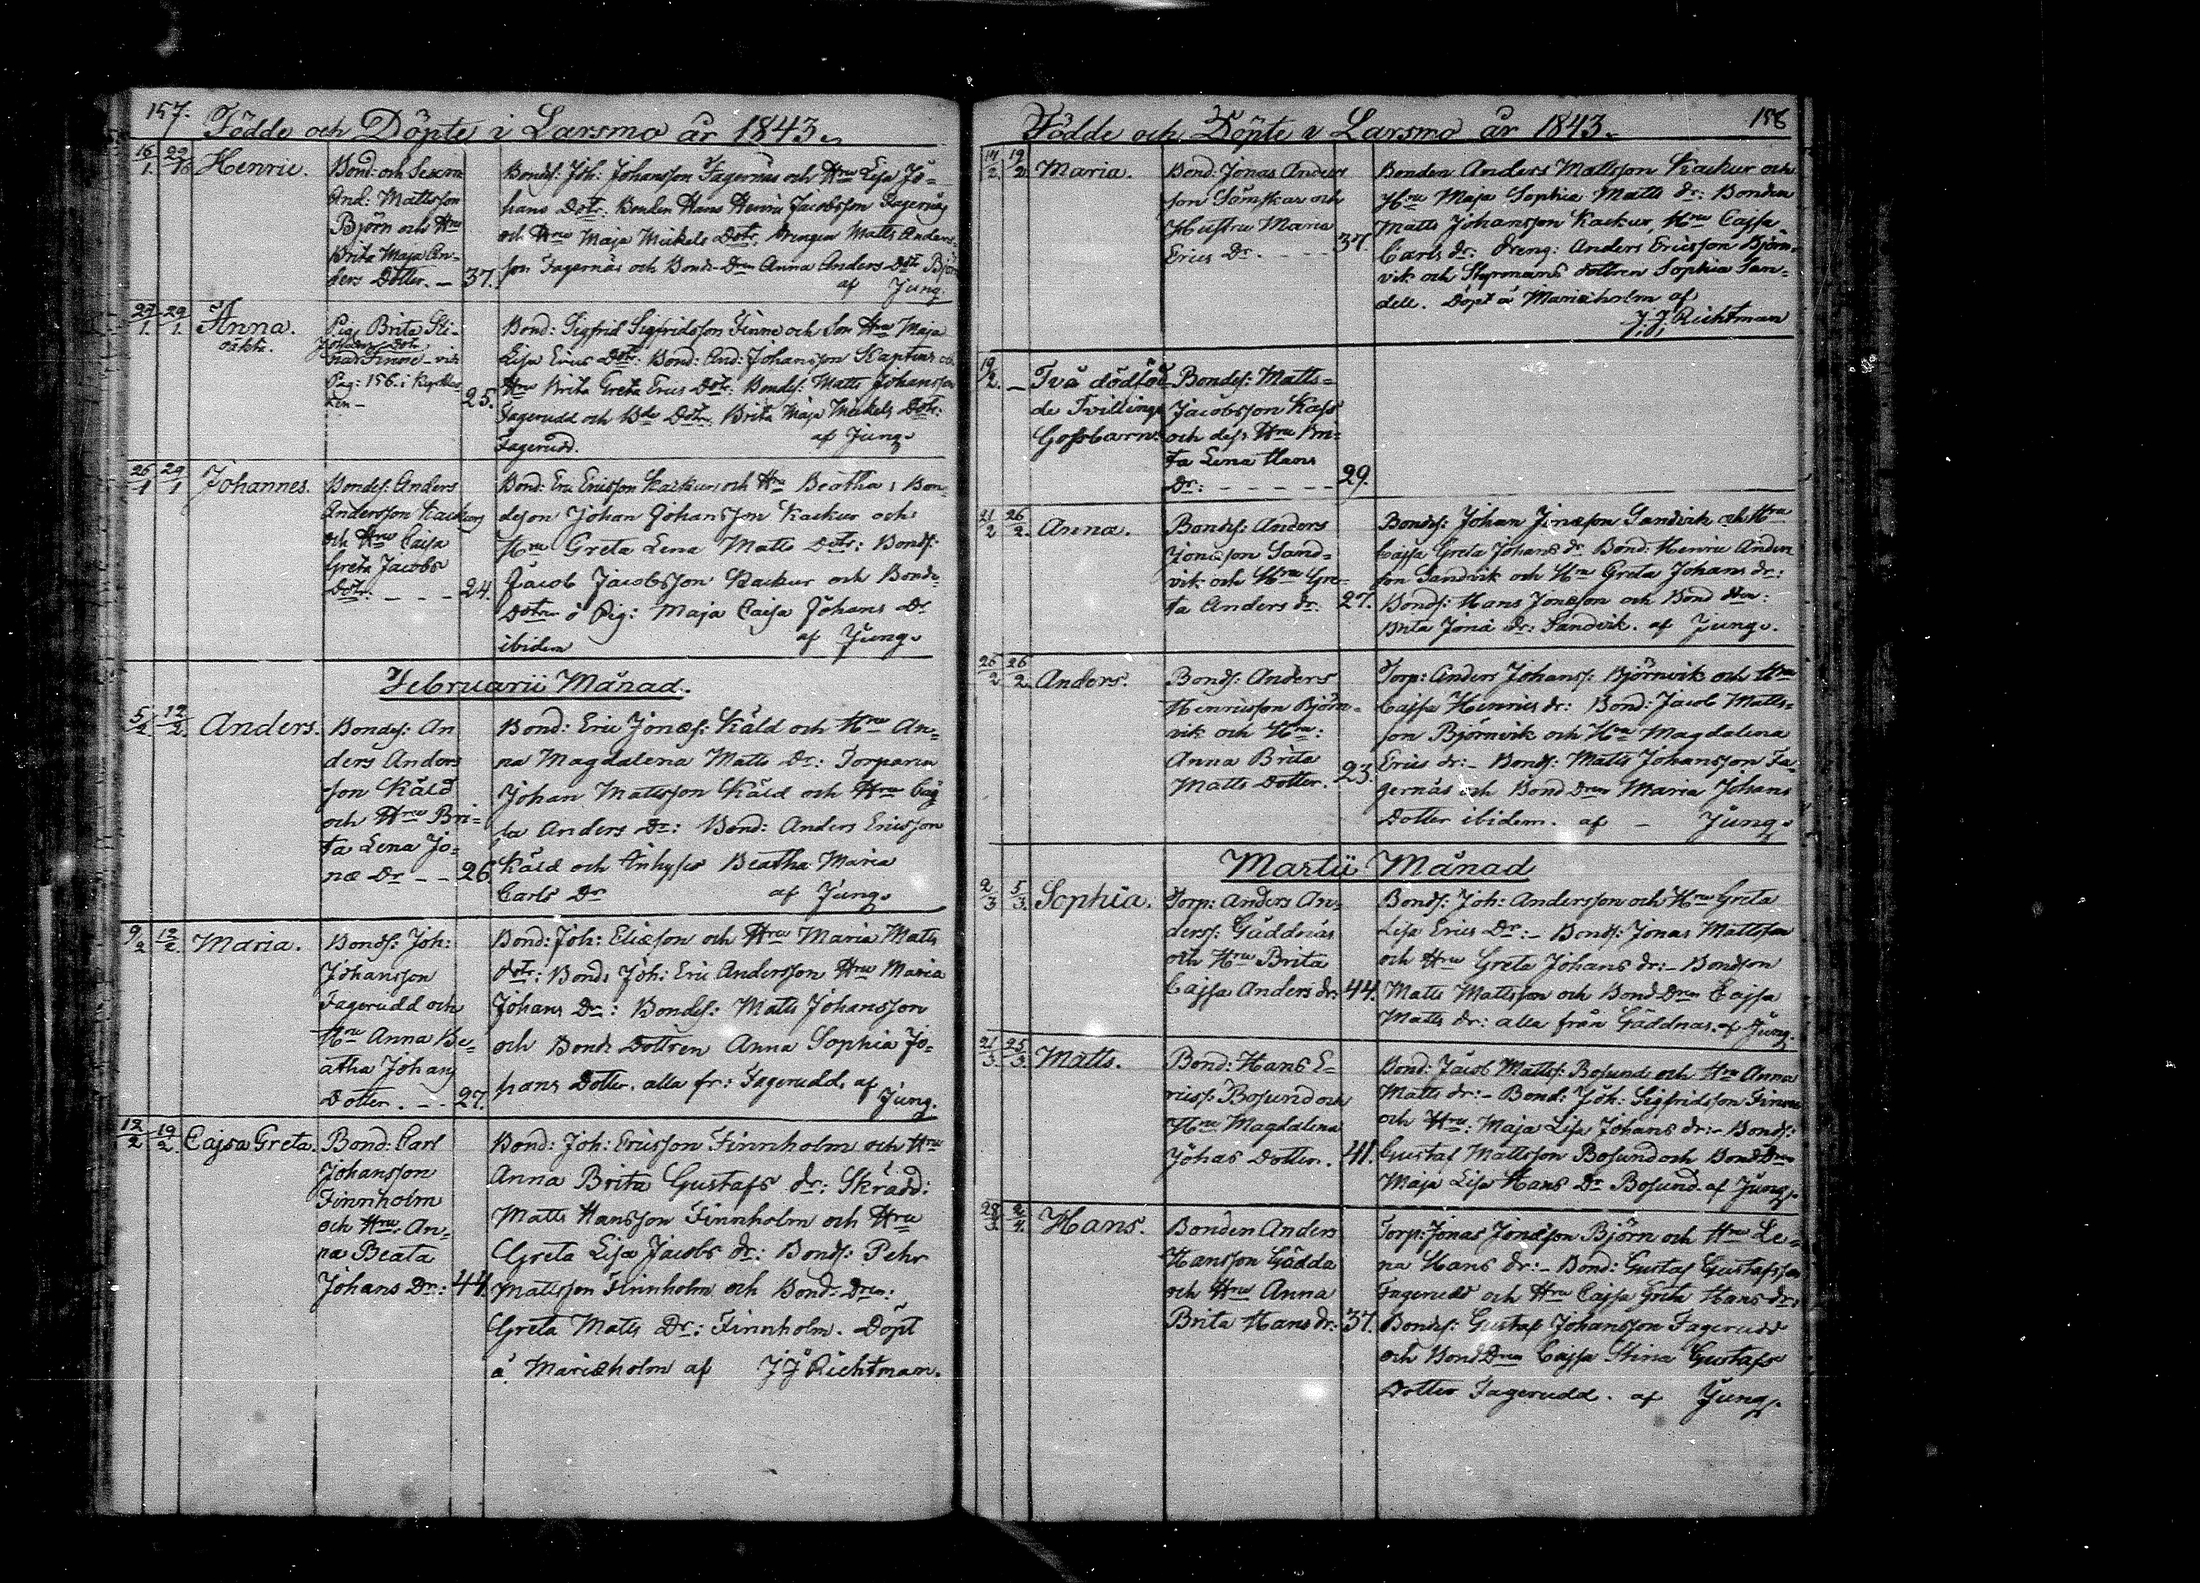 157. Födde och Döpte i Larsmo år 1843.
16/1 22/1 Henric. Bond: och Sexm:
And: Mattsson
Björn och Hru
Brita Maja An-
ders Dotter. — 37.
Bonds: Joh: Johansson Fagernäs och Hru Lisa Jo=
hans Dotr. Bonden Hans Henric Jacobsson Fagernäs
och Hru Maja Mickels Dotr. Drengen Matts Anders-
son Fagernäs och Bond-Dren Anna Anders Dotr Björn
af Jung.
27/1 29/1 Anna.
oäkta.
Pig. Brita Sti-
Johans Dotr.
Finne — vid
Pag: 156. i Kyrkbo-
ken —
25.
Bond: Sigfrid Sigfridsson Finne och Son Hru Maja
Lisa Erics Dotr: Bond: And: Johansson
Hru Brita Greta Erics Dotr: Bonds: Matts Johansson
Fagerudd och Bde Dotr. Brita Maja Mickels Dotr:
Fagerudd. af Jung.
26/1 29/1 Johannes. Bonds: Anders
Andersson Kackur
och Hru Caisa
Greta Jacobs
Dotr. — — — 24.
Bond: Eric Ericsson Kackur och Hru Beatha, Bon-
deson Johan Johansson Kackur och
Hru Greta Lena Matts Dotr: Bonds:
Jacob Jacobsson Kackur och Bonde
Dotren Pig: Maja Caisa Johans Dr
ibidem af Jung.
Februarii Månad.
5/2 12/2 Anders. Bonds: An
ders Anders
son Käld
och Hru Bri-
ta Lena Jo-
næ Dr — — 26.
Bond: Eric Jonæs: Käld och Hru An-
na Magdalena Matts Dr: Torparen
Johan Mattsson Käld och Hru Caj
sa Anders Dr: Bond: Anders Ericsson
Käld och Inhyses Beatha Maria
Carls Dr af Jung.
9/2 12/2 Maria. Bonds: Joh:
Johansson
Fagerudd och
Hru Anna Be-
atha Johans
Dotter. — — 27.
Bond: Joh: Eliæson och Hru Maria Matts
dotr: Bonds Joh: Eric Andersson Hru Maria
Johans Dr: Bonds: Matts Johansson
och Bond: Dottren Anna Sophia Jo-
hans Dotter. alla fr: Fagerudd. af
Jung.
12/2 19/2 Cajsa Greta. Bond: Carl
Johansson
Finnholm
och Hru. An-
na Beata
Johans Dr: 44.
Bond: Joh: Ericsson Finnholm och Hru
Anna Brita Gustafs dr: Skrädd:
Matts Hansson Finnholm och Hru
Greta Lisa Jacobs dr: Bonds: Pehr
Mattsson Finnholm och Bond-Dren:
Greta Matts Dr: Finnholm. Döpt
å Mariæholm af JJ Richtman.
Födde och Döpte i Larsmo år 1843. 158
14/2 19/2 Maria. Bond: Jonas Anders
son Sämskar och
Hustru Maria
Erics Dr. — — — 37.
Bonden Anders Mattsson Kackur och
Hru Maja Sophia Matts dr: Bonden
Matts Johansson Kackur, Hru Cajsa
Carls dr: Dreng: Anders Ericsson Björn-
vik och Styrmans dottren Sophia San-
dell. Döpt å Mariæholm af
J.J. Richtman
19/2 — Två dödföd
de Tvillings
Gossbarn.
Bonds: Matts-
Jacobsson Kass
och dess Hru Bri-
ta Lena Hans
Dr: — — — — — 29.
21/2 26/2 Anna. Bonds: Anders
Jonæson Sand-
vik och Hru Gre-
ta Anders dr: 27.
Bonds: Johan Jonæson Sandvik och Hru
Cajsa Greta Johans dr. Bond: Henric Anders
son Sandvik och Hru Greta Johans dr:
Bonds: Hans Jonæson och Bond dren:
Brita Jonæ dr: Sandvik. af Jung.
26/2 26/2 Anders. Bonds: Anders
Henricsson Björn-
vik och Hru:
Anna Brita
Matts Dotter. 23.
Torp: Anders Johanss: Björnvik och Hru
Cajsa Henrics dr: Bond: Jacob Matts-
son Björnvik och Hru Magdalena
Erics dr:— Bonds: Matts Johansson Fa-
gernäs och Bond Dren Maria Johans
Dotter ibidem. af — Jung.
Martii Månad
2/3 5/3 Sophia. Torp: Anders An-
derss: Gäddnäs
och Hru Brita
Cajsa Anders dr: 44.
Bonds: Joh: Andersson och Hru Greta
Lisa Erics Dr:— Bonds: Jonas Mattsson
och Hru Greta Johans dr:— Bondson
Matts Mattsson och Bond Dren Cajsa
Matts dr: alla från Gäddnäs. af Jung.
21/3 25/3 Matts. Bond: Hans E-
ricss: Bosund och
Hru Magdalena
Johas Dotter. 41.
Bond: Jacob Mattss: Bosund och Hru Anna
Matts dr:— Bond: Joh: Sigfridsson Finne
och Hru: Maja Lisa Johans dr:— Bonds:
Gustaf Mattsson Bosund och Bond Dren
Maja Lisa Hans Dr Bosund. af Jung.
28/3 2/4 Hans. Bonden Anders
Hansson Gädda
och Hru Anna
Brita Hans dr: 37.
Torp: Jonas Jonæson Björn och Hru Le-
na Hans dr:— Bond: Gustaf Gustafsson
Fagerudd och Hru Cajsa Greta Hans dr:
Bonds: Gustaf Johansson Fagerudd
och Bond Dren Cajsa Stina Gustafs
Dotter Fagerudd. af Jung.